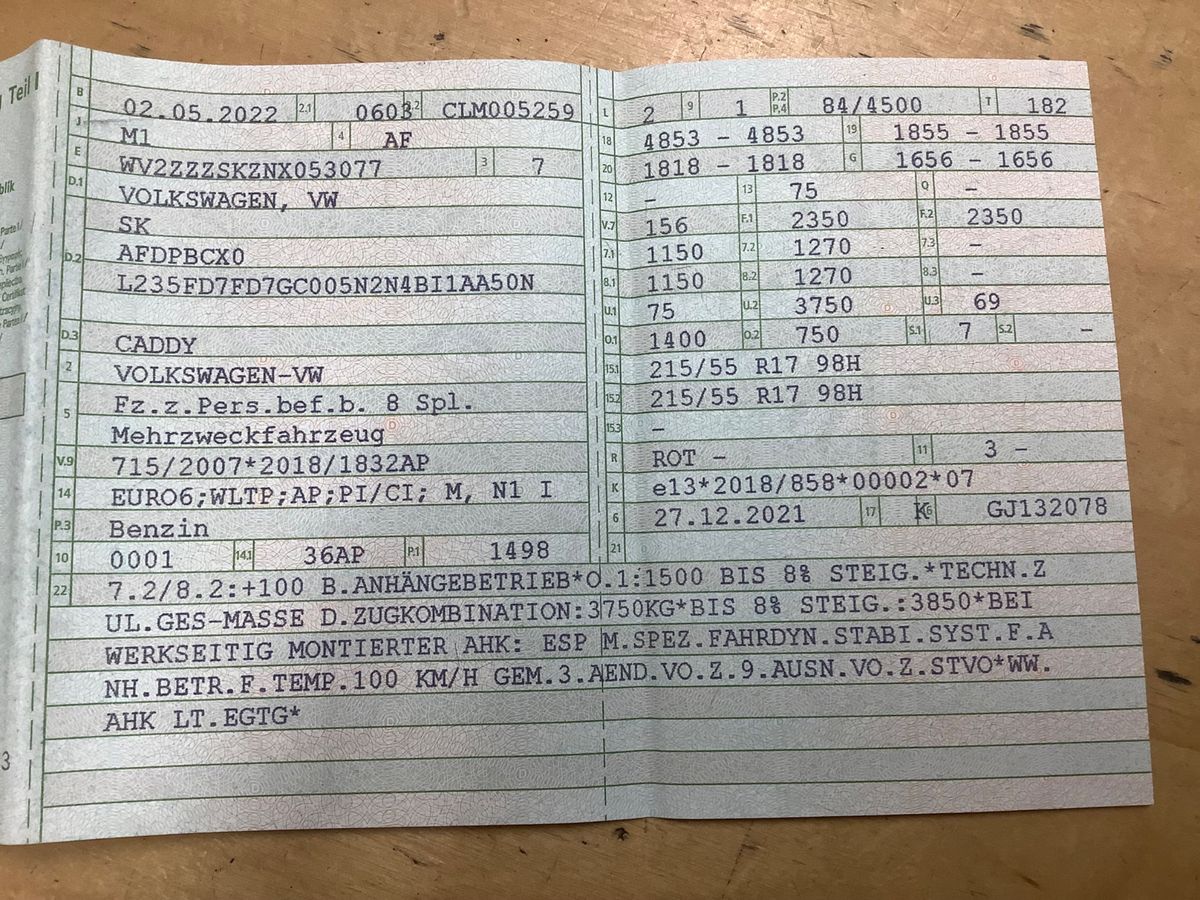 Teil I
B 02.05.2022 2.1 0603 2.2 CLM005259
J M1 4 AF
E WV2ZZZSKZNX053077 3 7
D.1 VOLKSWAGEN, VW
SK
D.2 AFDPBCX0
L235FD7FD7GC005N2N4BI1AA50N
D.3 CADDY
2 VOLKSWAGEN-VW
5 Fz.z.Pers.bef.b. 8 Spl.
Mehrzweckfahrzeug
V.9 715/2007*2018/1832AP
14 EURO6;WLTP;AP;PI/CI; M, N1 I
P.3 Benzin
10 0001 14.1 36AP P.1 1498
L 2 9 1 P.2 P.4 84/4500 T 182
18 4853 - 4853 19 1855 - 1855
20 1818 - 1818 G 1656 - 1656
12 - 13 75 Q -
V.7 156 F.1 2350 F.2 2350
7.1 1150 7.2 1270 7.3 -
8.1 1150 8.2 1270 8.3 -
U.1 75 U.2 3750 U.3 69
O.1 1400 O.2 750 S.1 7 S.2 -
15.1 215/55 R17 98H
15.2 215/55 R17 98H
15.3 -
R ROT - 11 3 -
K e13*2018/858*00002*07
6 27.12.2021 17 K 16 GJ132078
21
22 7.2/8.2:+100 B.ANHÄNGEBETRIEB*O.1:1500 BIS 8% STEIG.*TECHN.Z
UL.GES-MASSE D.ZUGKOMBINATION:3750KG*BIS 8% STEIG.:3850*BEI
WERKSEITIG MONTIERTER AHK: ESP M.SPEZ.FAHRDYN.STABI.SYST.F.A
NH.BETR.F.TEMP.100 KM/H GEM.3.AEND.VO.Z.9.AUSN.VO.Z.STVO*WW.
AHK LT.EGTG*
3